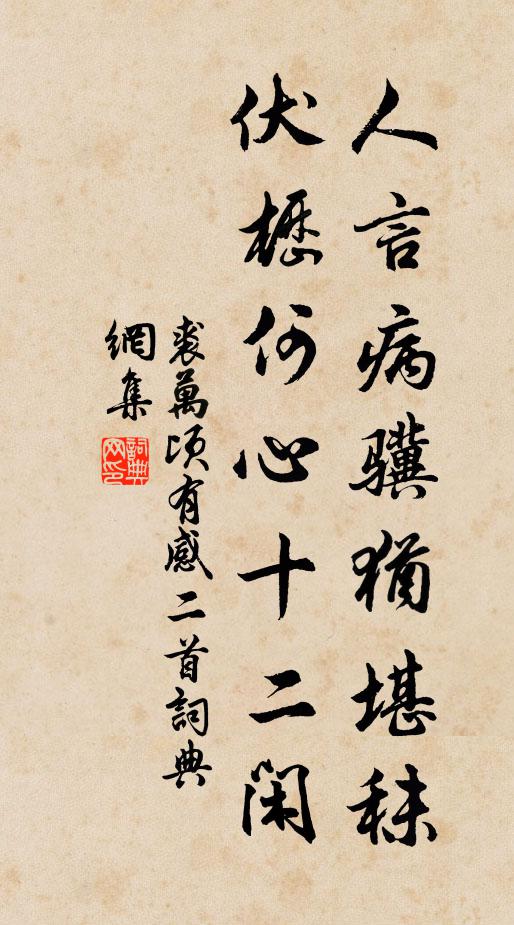 人言病驥猶堪秣
伏櫪何心十二閑
裘萬頃有感二首詞典
網集
詞典
网印